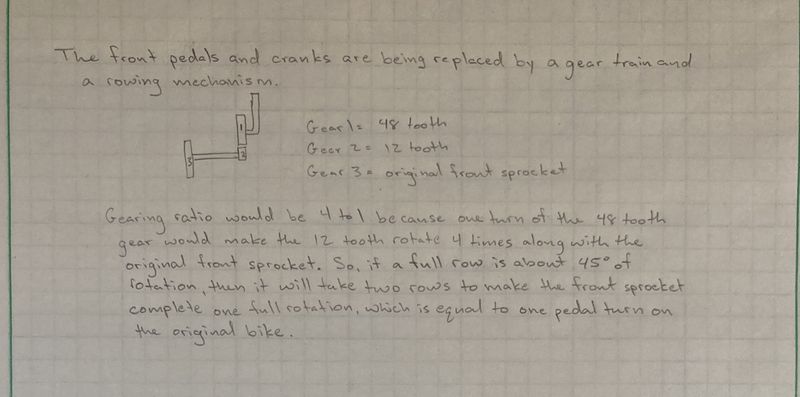 The front pedals and cranks are being replaced by a gear train and
a rowing mechanism.
1
2
3
Gear 1= 48 tooth
Gear 2 = 12 tooth
Gear 3 = original front sprocket
Gearing ratio would be 4 to 1 because one turn of the 48 tooth
gear would make the 12 tooth rotate 4 times along with the
original front sprocket. So, if a full row is about 45° of
rotation, then it will take two rows to make the front sprocket
complete one full rotation, which is equal to one pedal turn on
the original bike.